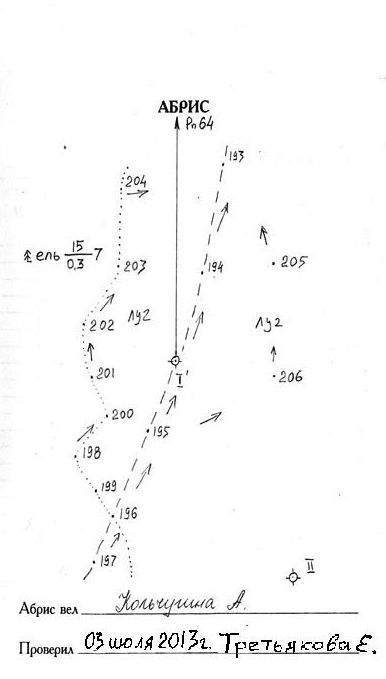 АБРИС
Рп 64
193
204
ель 15/0,3 7
203
194
205
202
Луг
Луг
201
I'
206
200
195
198
199
196
197
II
Абрис вел Кольчугина А.
Проверил 03 июля 2013г. Третьякова Е.